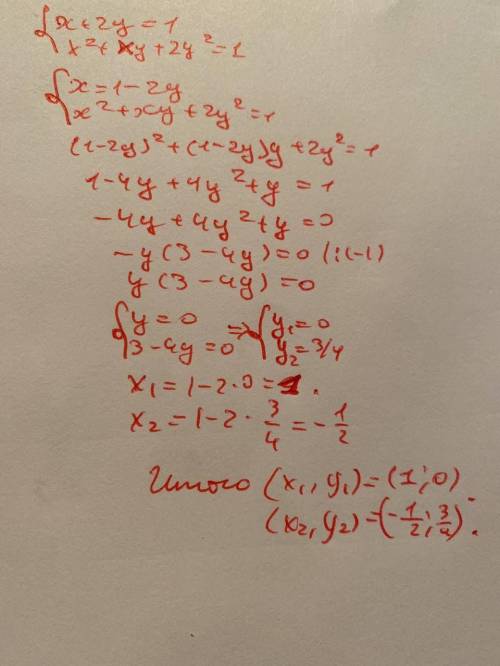 {x+2y=1
x²+xy+2y²=1
{x=1-2y
x²+xy+2y²=1
(1-2y)²+(1-2y)y+2y²=1
1-4y+4y²+y=1
-4y+4y²+y=0
-y(3-4y)=0 /:(-1)
y(3-4y)=0
{y=0 => {y₁=0
3-4y=0 y₂=3/4
x₁=1-2·0=1.
x₂=1-2·3/4=-1/2
Итого (x₁, y₁)=(1;0)
(x₂, y₂)=(-1/2;3/4).